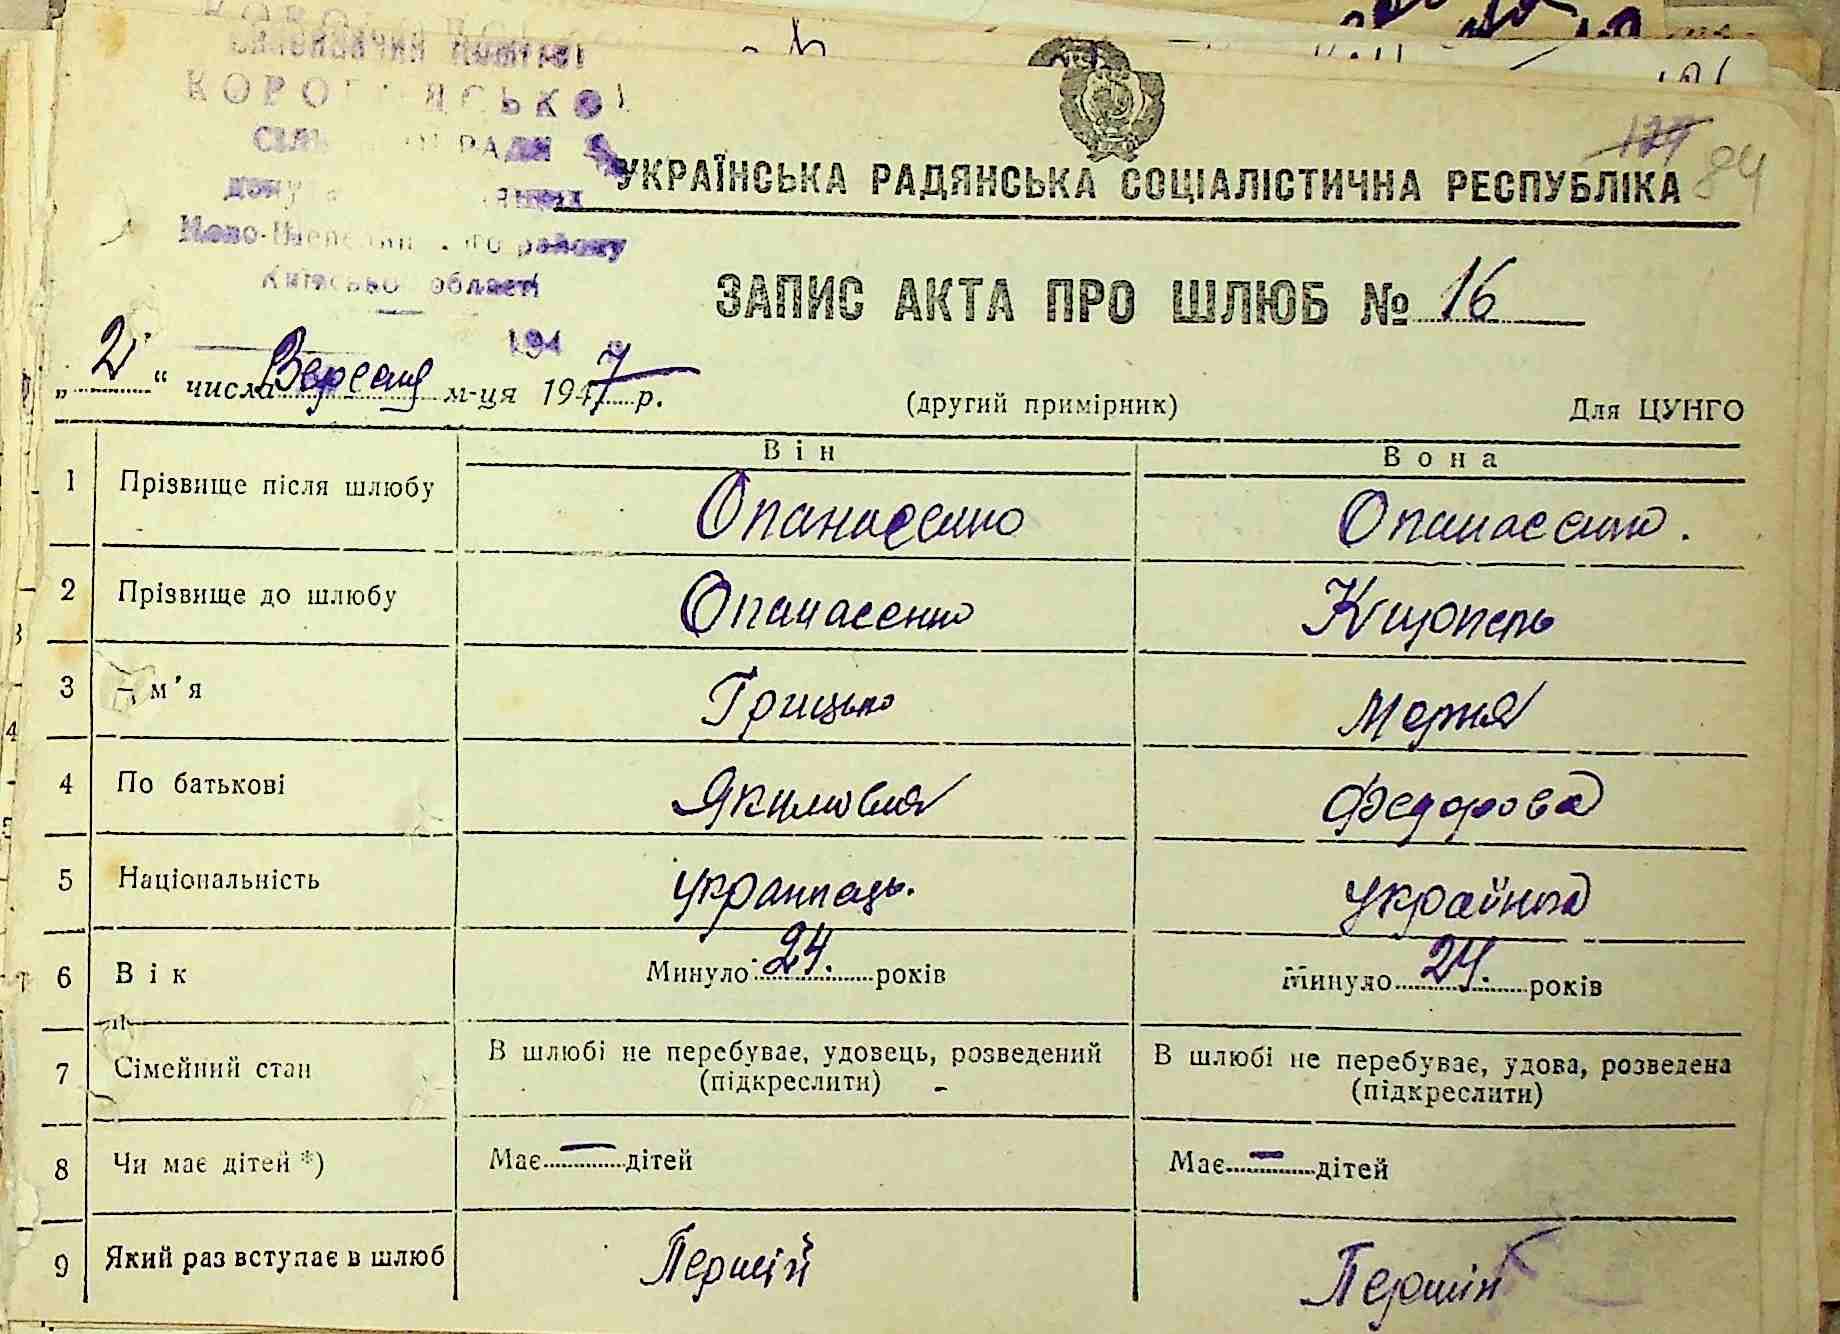 КОРО ЯСЬКОЇ
СІЛ РАДИ
Ново-Шепели го району
Київсько області
194
127 84
УКРАЇНСЬКА РАДЯНСЬКА СОЦІАЛІСТИЧНА РЕСПУБЛІКА
ЗАПИС АКТА ПРО ШЛЮБ № 16
„2“ числа Вересня м-ця 1947 р.
(другий примірник)
Для ЦУНГО
Він Вона
1 Прізвище після шлюбу Опанасенко Опанасенко.
2 Прізвище до шлюбу Опанасенко
3 м'я Грицько Мария
4 По батькові Якимовия Федорова
5 Національність Украинець. Україика
6 Вік Минуло 24. років Минуло 24. років
7 Сімейний стан В шлюбі не перебуває, удовець, розведений (підкреслити) В шлюбі не перебуває, удова, розведена (підкреслити)
8 Чи має дітей *) Має — дітей Має — дітей
9 Який раз вступає в шлюб Перший Перший